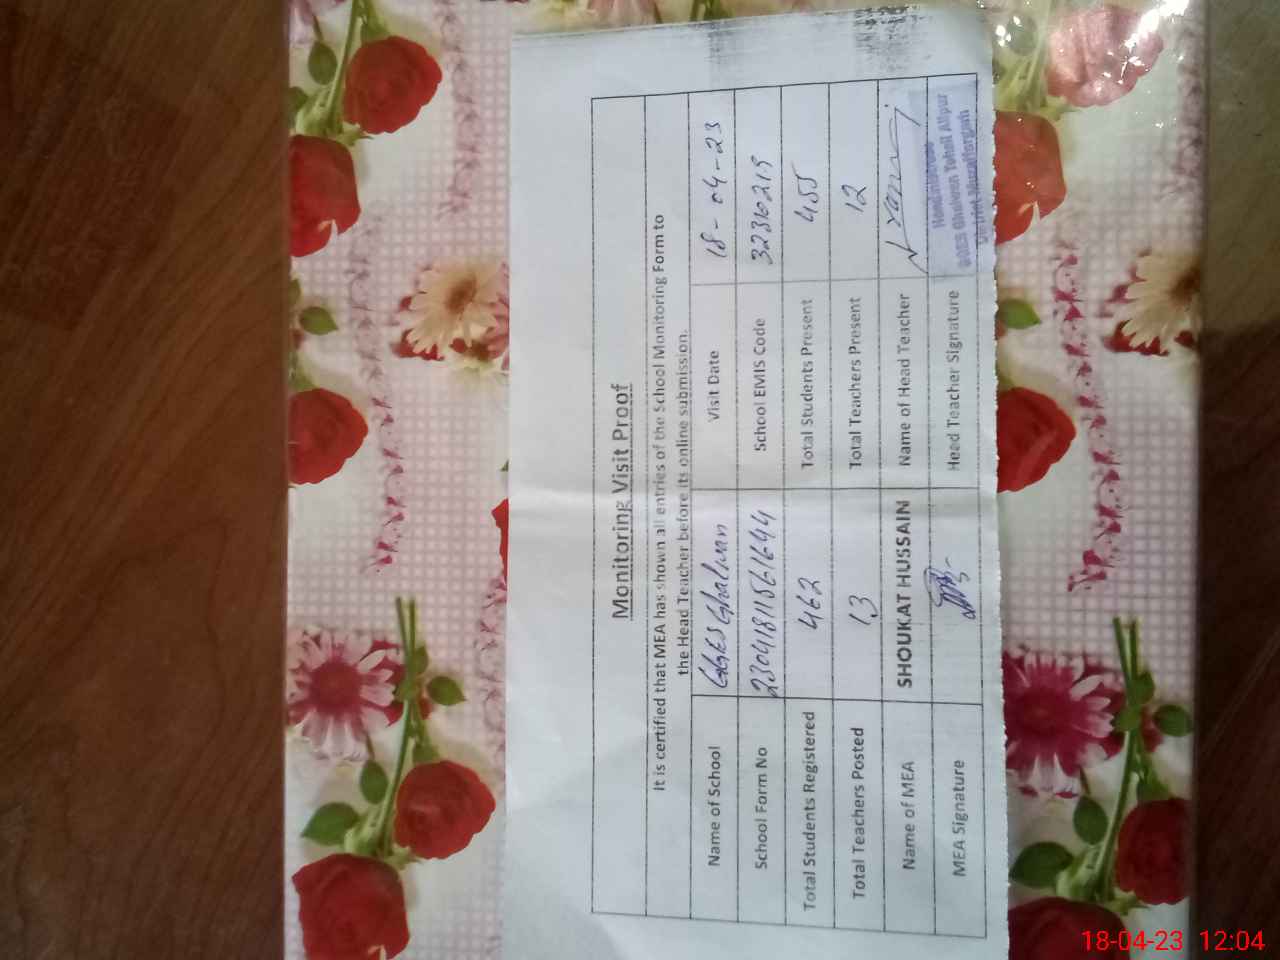 Monitoring Visit Proof
It is certified that MEA has shown all entries of the School Monitoring Form to
the Head Teacher before its online submission.
Name of School GGES Ghalwan Visit Date 18-04-23
School Form No 23041811561644 School EMIS Code 32310215
Total Students Registered 462 Total Students Present 455
Total Teachers Posted 13 Total Teachers Present 12
Name of MEA SHOUKAT HUSSAIN Name of Head Teacher
MEA Signature Head Teacher Signature
Headmistress
GGES Ghalwan Tehsil Alipur
District Muzaffargarh
18-04-23 12:04